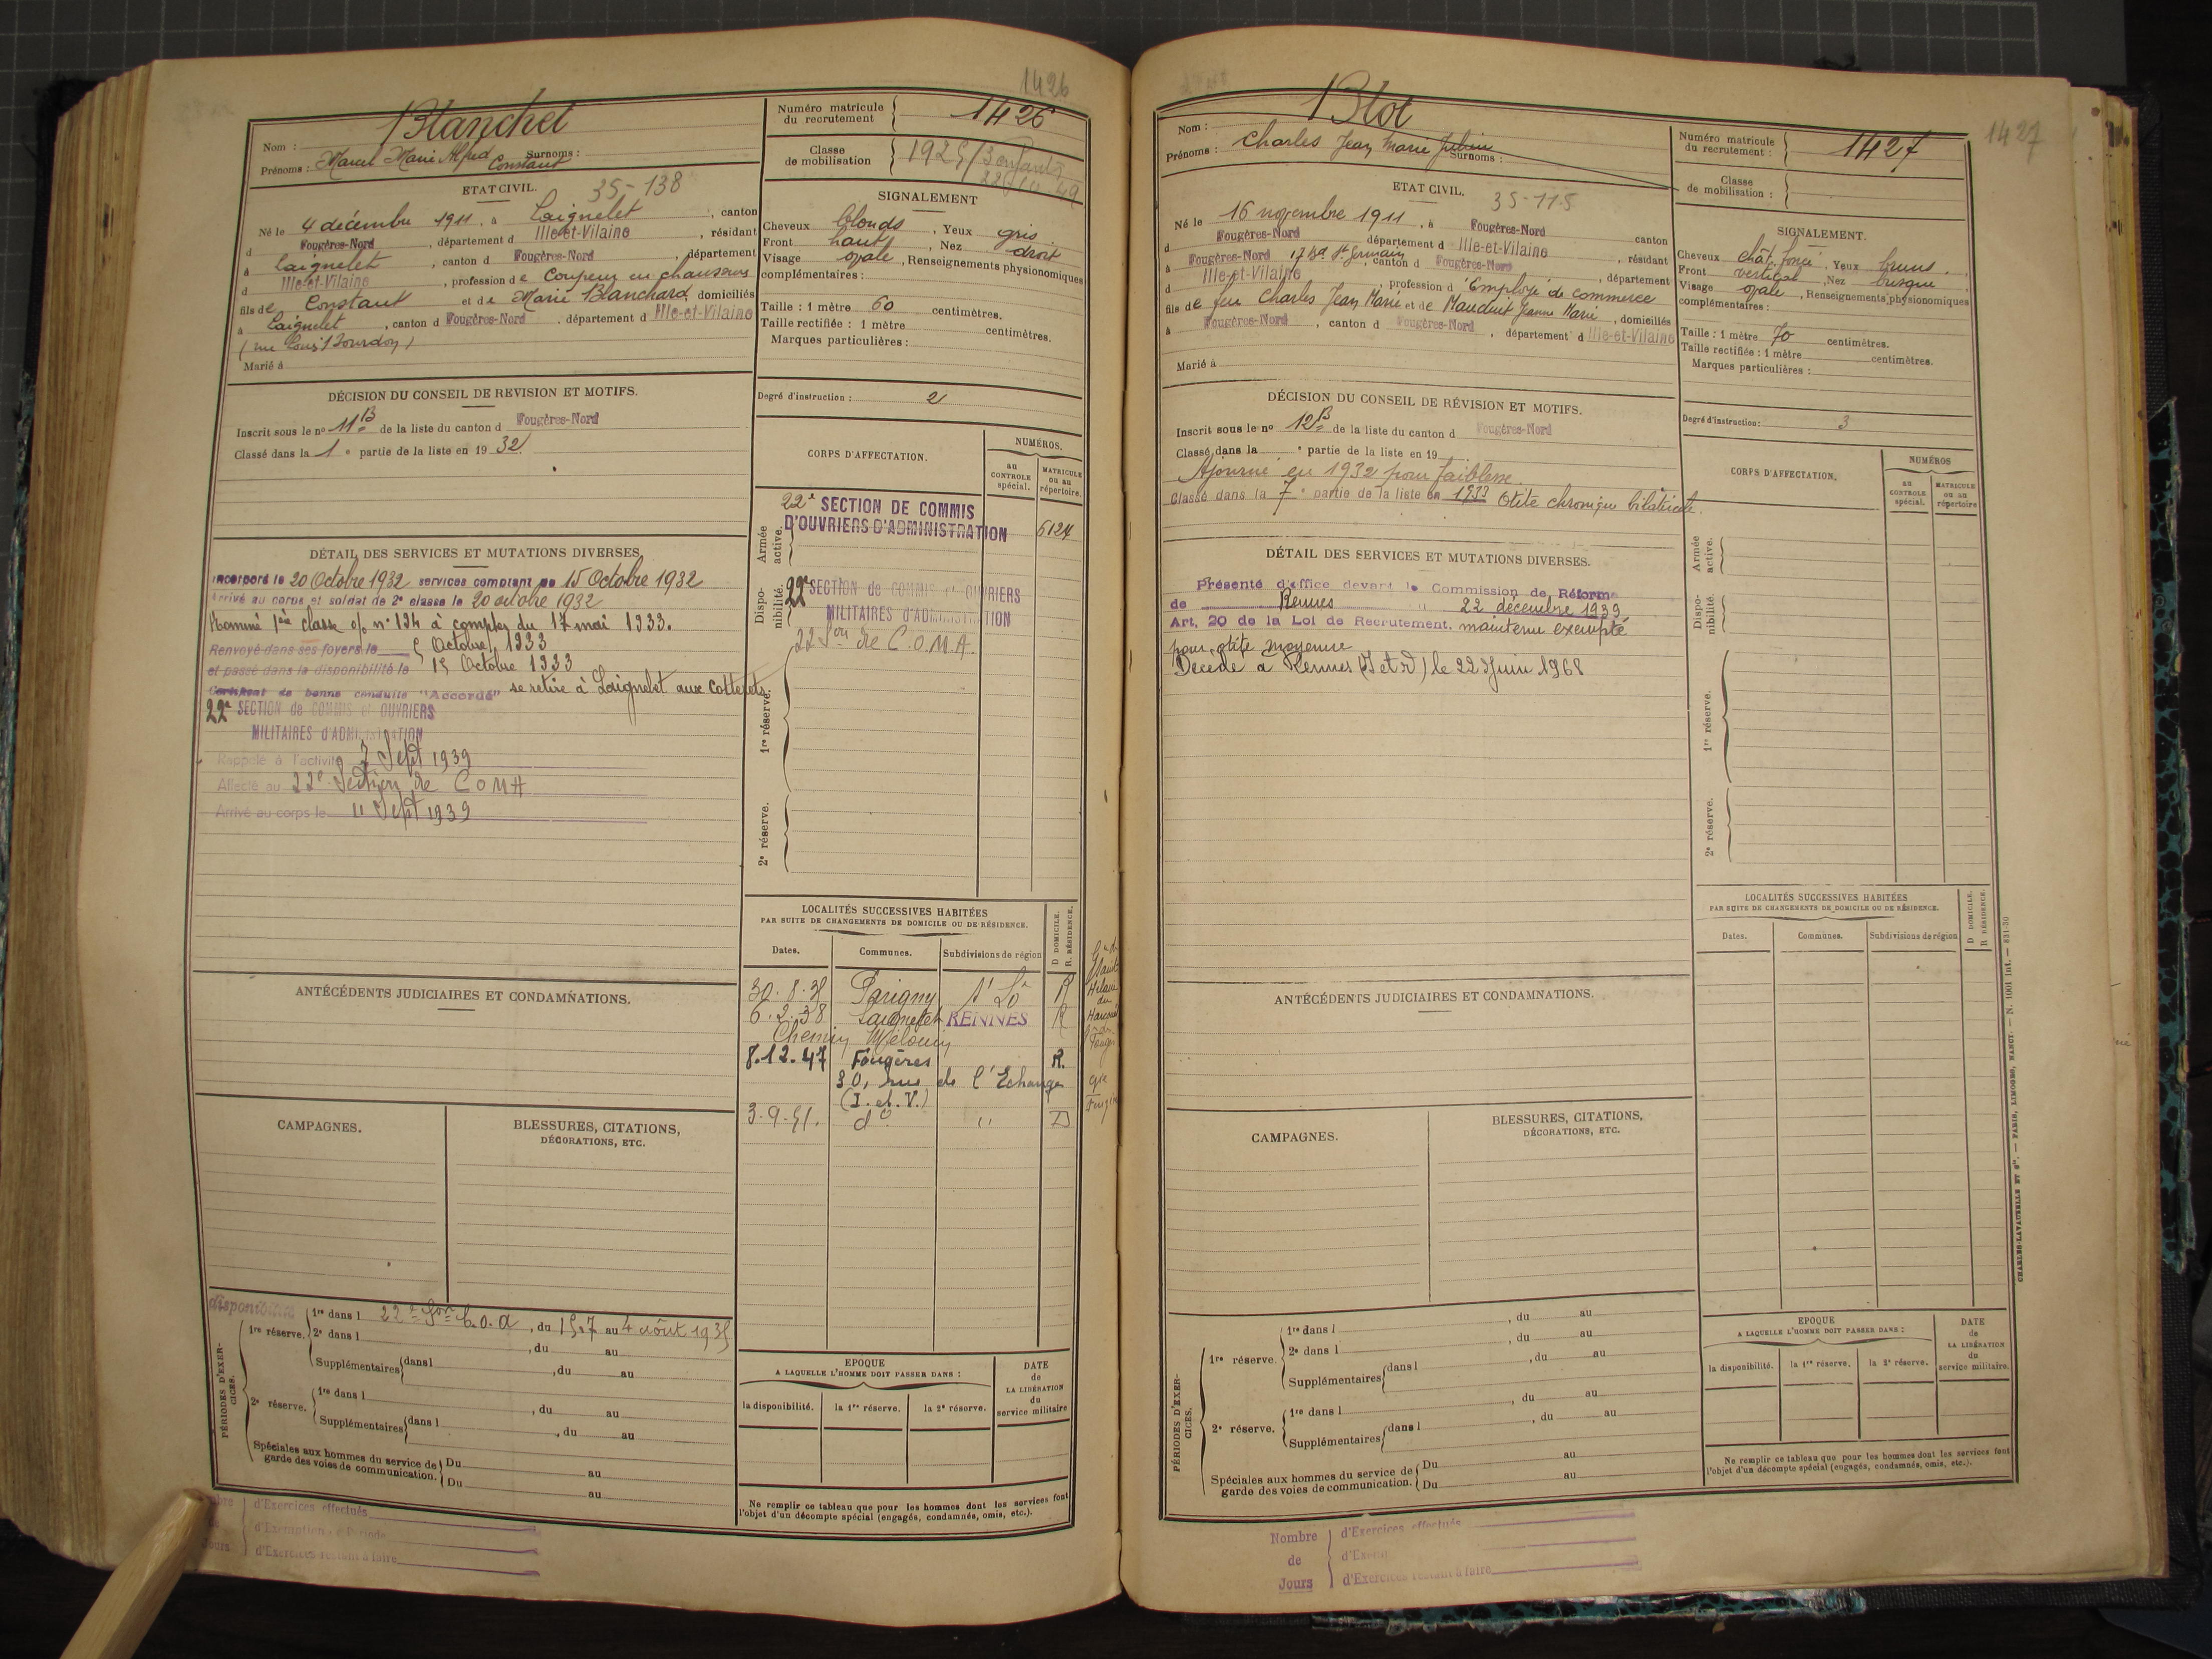 1426
Nom : Blanchet
Prénoms : Marcel Marie Alfred Constant Surnoms :
Numéro matricule du recrutement 1426
Classe de mobilisation 1925/3 enfants
ETAT CIVIL. 35-138
Né le 4 décembre 1911, à Laignelet, canton
d Fougères-Nord, département d Ille-et-Vilaine, résidant
à Laignelet, canton d Fougères-Nord, département
d Ille-et-Vilaine, profession de Coupeur en chaussures
fils de Constant et de Marie Blanchard, domiciliés
à Laignelet, canton d Fougères-Nord, département d Ille-et-Vilaine
Marié à
SIGNALEMENT
Cheveux blonds, Yeux gris
Front haut, Nez droit
Visage ovale, Renseignements physionomiques
complémentaires :
Taille : 1 mètre 60 centimètres.
Taille rectifiée : 1 mètre centimètres.
Marques particulières :
Degré d'instruction : 2
DÉCISION DU CONSEIL DE REVISION ET MOTIFS.
Inscrit sous le no 11 B de la liste du canton d Fougères-Nord
Classé dans la 1e partie de la liste en 1932
DÉTAIL DES SERVICES ET MUTATIONS DIVERSES.
Incorporé le 20 Octobre 1932 services comptant du 15 Octobre 1932
Arrivé au corps et soldat de 2e classe le 20 octobre 1932
Nommé 1ère classe o/o n° 134 à compter du 17 mai 1933.
Renvoyé dans ses foyers le 5 Octobre 1933
et passé dans la disponibilité le 15 Octobre 1933
Certificat de bonne conduite "Accordé" se retire à Laignelet aux Cotterets
22e SECTION de COMMIS et OUVRIERS
MILITAIRES d'ADMINISTRATION
Rappelé à l'activité 7 Sept 1939
Affecté au 22e Section de COMA
Arrivé au corps le 11 Sept 1939
CORPS D'AFFECTATION.
NUMÉROS.
au CONTROLE spécial.
MATRICULE ou au répertoire.
Armée active.
22e SECTION DE COMMIS
D'OUVRIERS D'ADMINISTRATION 6124
Disponibilité.
22e SECTION de COMMIS et OUVRIERS
MILITAIRES d'ADMINISTRATION
22 Son de C.O.M.A.
1re réserve.
2e réserve.
LOCALITÉS SUCCESSIVES HABITÉES
PAR SUITE DE CHANGEMENTS DE DOMICILE OU DE RÉSIDENCE.
Dates. Communes. Subdivisions de région D DOMICILE. R RÉSIDENCE.
Parigny St Lô R
6.2.38 Laignelet RENNES R
8.12.47 Fougères R.
30, rue de l'Echange
(I. et V.)
3.9.51. do " D
ANTÉCÉDENTS JUDICIAIRES ET CONDAMNATIONS.
CAMPAGNES.
BLESSURES, CITATIONS,
DÉCORATIONS, ETC.
PÉRIODES D'EXERCICES.
disponibilité
1re réserve. 1re dans l 22e Son C.O.A, du 15.7 au 4 août 1935
2e dans l , du au
Supplémentaires dans l , du au
2e réserve. 1re dans l , du au
Supplémentaires dans l , du au
Spéciales aux hommes du service de garde des voies de communication. Du au
Du au
EPOQUE
A LAQUELLE L'HOMME DOIT PASSER DANS :
la disponibilité. la 1re réserve. la 2e réserve.
DATE de LA LIBÉRATION du service militaire
Ne remplir ce tableau que pour les hommes dont les services font
l'objet d'un décompte spécial (engagés, condamnés, omis, etc.).
d'Exercices effectués
d'Exercices restant à faire
1427
Nom : Blot
Prénoms : Charles Jean Marie Julien Surnoms :
Numéro matricule du recrutement : 1427
Classe de mobilisation :
ETAT CIVIL. 35-115
Né le 16 novembre 1911, à Fougères-Nord canton
d Fougères-Nord département d Ille-et-Vilaine, résidant
à Fougères-Nord 17 Bd St Germain, canton d Fougères-Nord, département
d Ille-et-Vilaine, profession d'Employé de commerce
fils de feu Charles Jean Marie et de Mauduit Jeanne Marie, domiciliés
à Fougères-Nord, canton d Fougères-Nord, département d Ille-et-Vilaine
Marié à
SIGNALEMENT.
Cheveux chât. foncé, Yeux bruns.
Front vertical, Nez busqué
Visage ovale, Renseignements physionomiques
complémentaires :
Taille : 1 mètre 70 centimètres.
Taille rectifiée : 1 mètre centimètres.
Marques particulières :
Degré d'instruction : 3
DÉCISION DU CONSEIL DE RÉVISION ET MOTIFS.
Inscrit sous le no 12 B de la liste du canton d Fougères-Nord
Classé dans la e partie de la liste en 19
Ajourné en 1932 pour faiblesse.
Classé dans la 7e partie de la liste en 1933 Otite chronique bilatérale.
DÉTAIL DES SERVICES ET MUTATIONS DIVERSES.
Présenté d'office devant la Commission de Réforme
de Rennes " 22 décembre 1939
Art. 20 de la Loi de Recrutement. maintenu exempté
pour otite moyenne
Décédé à Rennes (I et V) le 22 Juin 1968
CORPS D'AFFECTATION.
NUMÉROS
au CONTROLE spécial.
MATRICULE ou au répertoire
Armée active.
Disponibilité.
1re réserve.
2e réserve.
LOCALITÉS SUCCESSIVES HABITÉES
PAR SUITE DE CHANGEMENTS DE DOMICILE OU DE RÉSIDENCE.
Dates. Communes. Subdivisions de région D DOMICILE. R RÉSIDENCE.
ANTÉCÉDENTS JUDICIAIRES ET CONDAMNATIONS.
CAMPAGNES.
BLESSURES, CITATIONS,
DÉCORATIONS, ETC.
PÉRIODES D'EXERCICES.
1re réserve. 1re dans l , du au
2e dans l , du au
Supplémentaires dans l , du au
2e réserve. 1re dans l , du au
Supplémentaires dans l , du au
Spéciales aux hommes du service de garde des voies de communication. Du au
Du au
EPOQUE
A LAQUELLE L'HOMME DOIT PASSER DANS :
la disponibilité. la 1re réserve. la 2e réserve.
DATE de LA LIBÉRATION du service militaire.
Ne remplir ce tableau que pour les hommes dont les services font
l'objet d'un décompte spécial (engagés, condamnés, omis, etc.).
Nombre de Jours
d'Exercices effectués
d'Exercices restant à faire
CHARLES-LAVAUZELLE ET Cie. — PARIS, LIMOGES, NANCY. — N. 1001 int. — 831-30